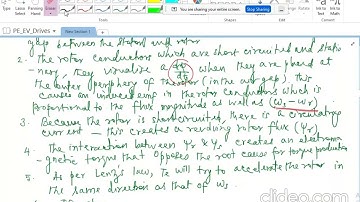 You are sharing your entire screen
Stop Sharing
PE_EV_Drives
New Section 1
gap between the stator and rotor
2. The rotor conductors which are short circuited and statio
-nary, they visualize a dψs/dt when they are placed at
the outer periphery of the rotor (in the air gap). This
causes an induced emf in the rotor conductors which is
proportional to the flux magnitude as well as (ωs - ωr)
3. Because the rotor is short circuited, there is a circulating
current – this creates a resulting rotor flux (ψr)
4. The interaction between ψr & ψs creates an electroma
-gnetic torque that opposes the root cause for torque production
5. As per Lenz's law, Te will try to accelerate the rotor in
the same direction as that of ωs
clideo.com